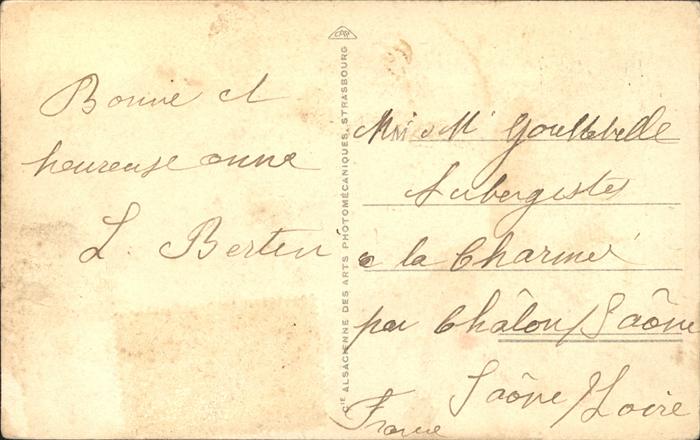 Bonne et
heureuse anne
L. Bertin
CIE ALSACIENNE DES ARTS PHOTOMÉCANIQUES, STRASBOURG
CAP
M
Aubergistes
à la Charmée
par Châlon/Saône
Saône/Loire
France